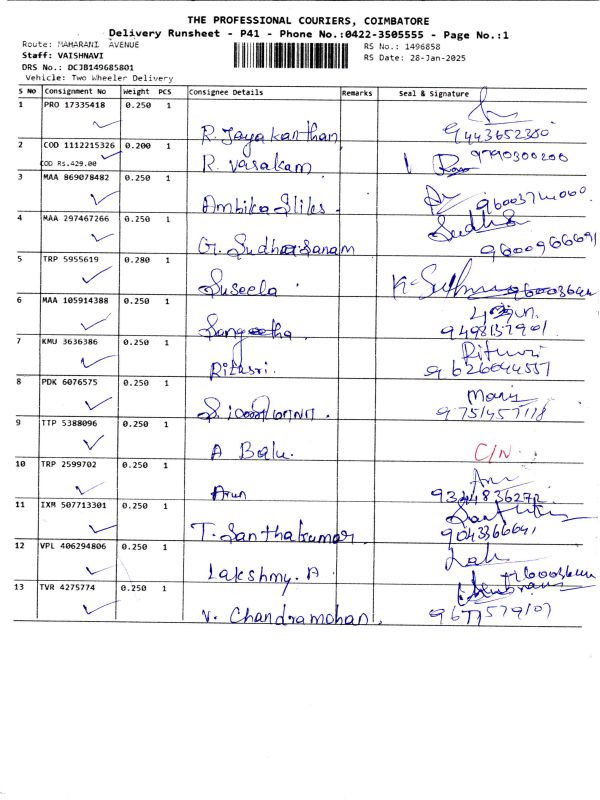 THE PROFESSIONAL COURIERS, COIMBATORE
Delivery Runsheet - P41 - Phone No.:0422-3505555 - Page No.:1
Route: MAHARANI AVENUE
RS No.: 1496858
Staff: VAISHNAVI
RS Date: 28-Jan-2025
DRS No.: DCJB149685801
Vehicle: Two Wheeler Delivery
S No Consignment No Weight PCS Consignee Details Remarks Seal & Signature
1 PRO 17335418 0.250 1
R. Jayakanthan 9443652380
2 COD 1112215326 0.200 1
COD RS.429.00 R. Vasakam 9790300200
3 MAA 869078482 0.250 1
Ambika Sliks.
4 MAA 297467266 0.250 1 Sudha
G. Sudharsanam 9600966691
5 TRP 5955619 0.280 1
Suseela
6 MAA 105914388 0.250 1
Sangeetha
7 KMU 3636386 0.250 1
Ritusri. 9626044551
8 PDK 6076575 0.250 1 Mani
9751451118
9 TTP 5388096 0.250 1
A Balu. C/N
10 TRP 2599702 0.250 1
Arun 9344836272
11 IXM 507713301 0.250 1
T. Santhakumar. 9043366641
12 VPL 406294806 0.250 1
Lakshmy. A
13 TVR 4275774 0.250 1
V. Chandramohan. 9677579107